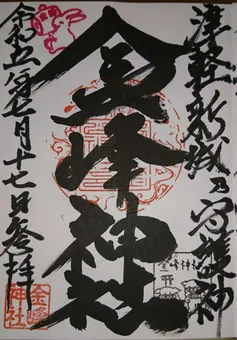 津軽新城乃守護神
金峰神社
令和五年七月十七日参拝
金峰神社